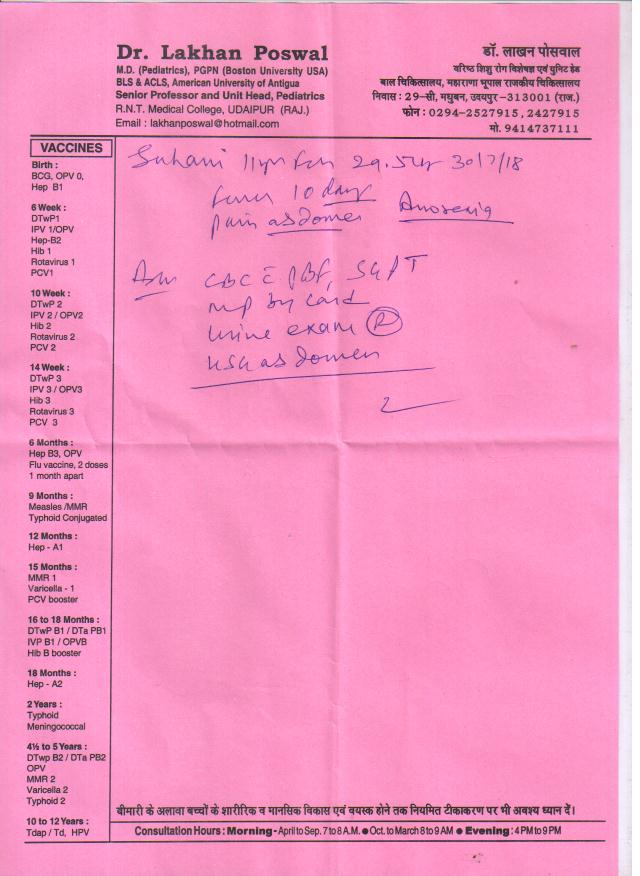 Dr. Lakhan Poswal
M.D. (Pediatrics), PGPN (Boston University USA)
BLS & ACLS, American University of Antigua
Senior Professor and Unit Head, Pediatrics
R.N.T. Medical College, UDAIPUR (RAJ.)
Email : lakhanposwal@hotmail.com
डॉ. लाखन पोसवाल
वरिष्ठ शिशु रोग विशेषज्ञ एवं युनिट हेड
बाल चिकित्सालय, महाराणा भूपाल राजकीय चिकित्सालय
निवास : 29-सी, मधुबन, उदयपुर-313001 (राज.)
फोन : 0294-2527915, 2427915
मो. 9414737111
VACCINES
Birth :
BCG, OPV 0,
Hep B1
6 Week :
DTwP1
IPV 1/OPV
Hep-B2
Hib 1
Rotavirus 1
PCV1
10 Week :
DTwP 2
IPV 2 / OPV2
Hib 2
Rotavirus 2
PCV 2
14 Week :
DTwP 3
IPV 3 / OPV3
Hib 3
Rotavirus 3
PCV 3
6 Months :
Hep B3, OPV
Flu vaccine, 2 doses
1 month apart
9 Months :
Measles /MMR
Typhoid Conjugated
12 Months :
Hep - A1
15 Months :
MMR 1
Varicella - 1
PCV booster
16 to 18 Months :
DTwP B1 / DTa PB1
IVP B1 / OPVB
Hib B booster
18 Months :
Hep - A2
2 Years :
Typhoid
Meningococcal
4½ to 5 Years :
DTwp B2 / DTa PB2
OPV
MMR 2
Varicella 2
Typhoid 2
10 to 12 Years :
Tdap / Td, HPV
Suhani 11yr 30/7/18
fever 10 day
pain abdomen Anorexia
Adv CBC c PBF, SGPT
mp by card
urine exam (R)
USG abdomen
बीमारी के अलावा बच्चों के शारीरिक व मानसिक विकास एवं वयस्क होने तक नियमित टीकाकरण पर भी अवश्य ध्यान दें।
Consultation Hours : Morning - April to Sep. 7 to 8 A.M. ● Oct. to March 8 to 9 AM ● Evening : 4 PM to 9 PM